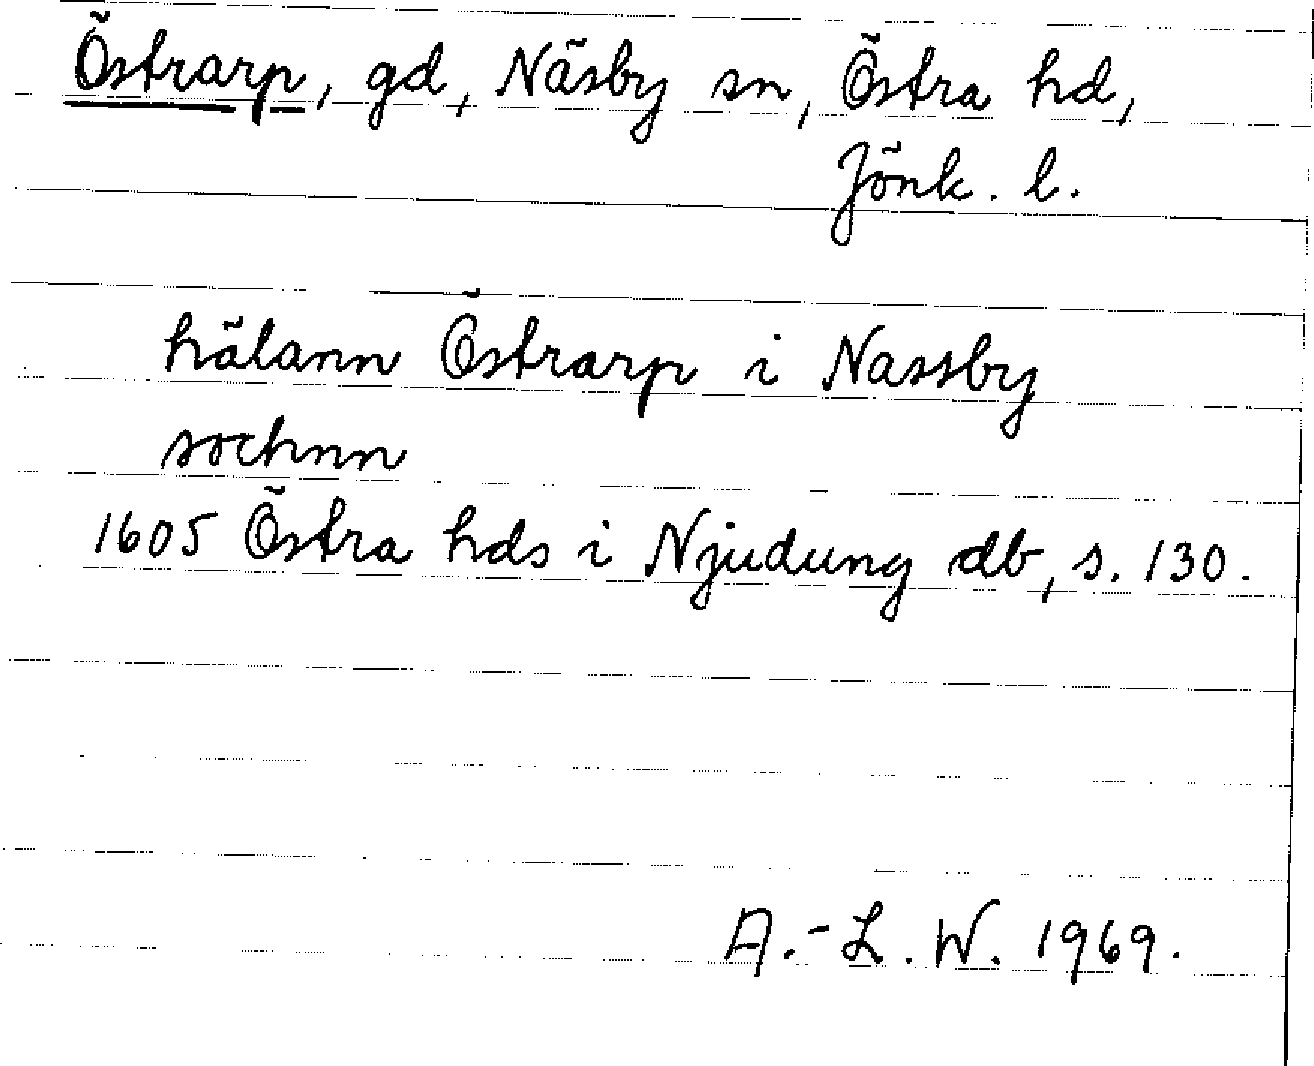 Östrarp, gd, Näsby sn, Östra hd,
Jönk. l.
hälann Östrarp i Nassby
sochnn
1605 Östra hds i Njudung db, s. 130.
A.-L. W. 1969.